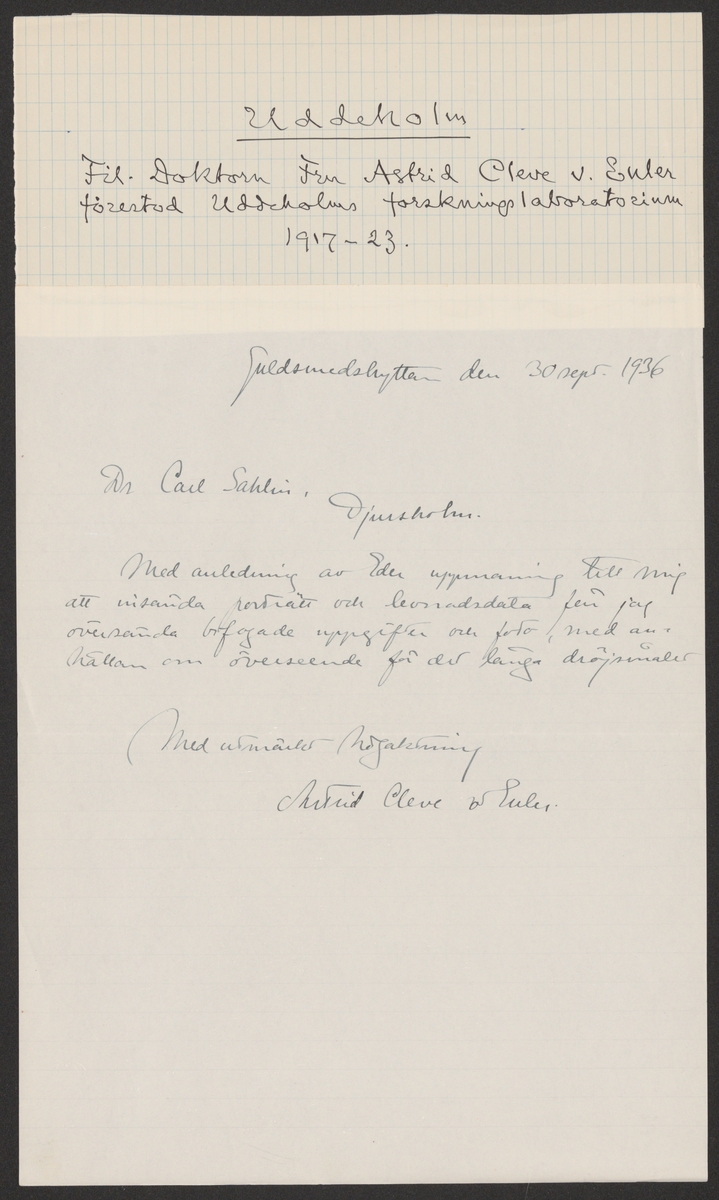 Uddeholm
Fil. Doktorn Fru Astrid Cleve v. Euler
förestod Uddeholms forskningslaboratorium
1917-23.
Guldsmedshyttan den 30 sept. 1936
Dr Carl Sahlin,
Djursholm.
Med anledning av Eder uppmaning till mig
att insända porträtt och levnadsdata får jag
översända bifogade uppgifter och foto, med an-
hållan om överseende för det långa dröjsmålet
Med utmärkt högaktning
Astrid Cleve v Euler.